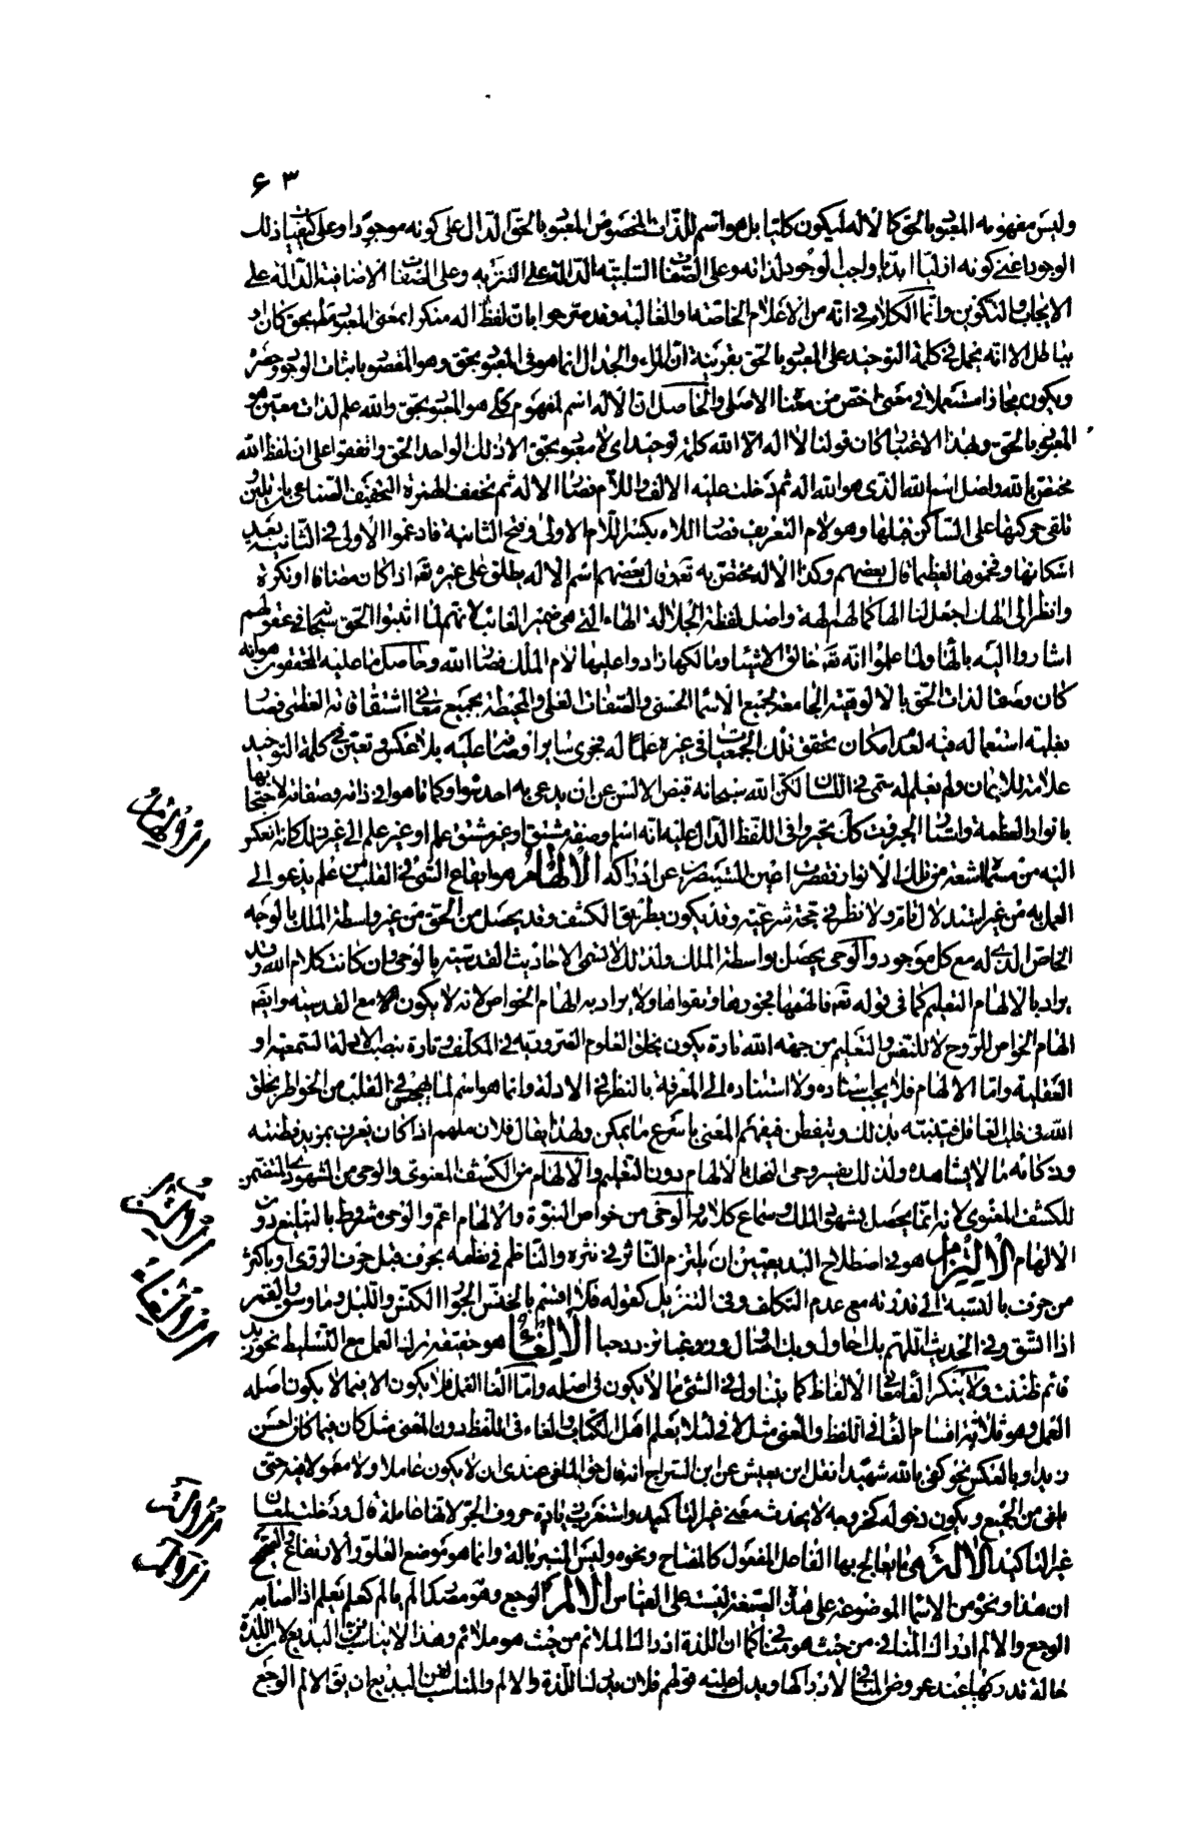 ٦٣
وليس مفهومه المعبود بالحق كالاله ليكون كليا بل هو اسم للذات المخصوص المعبود بالحق الدال على كونه موجودا وعلى كيفيات ذلك
الوجود اعني كونه ازليا ابديا واجب الوجود لذاته وعلى الصفات السلبية الدالة على التنزيه وعلى الصفات الاضافية الدالة على
الايجاد والتكوين وانما الكلام في انه من الاعلام الخاصة او الغالبة وقد صرحوا بان لفظ اله منكرا بمعنى المعبود مطلقا بحق كان او
بباطل الا انه يحمل في كلمة التوحيد على المعبود بالحق بقرينة ان المراء والجدال انما هو في المعبود بحق وهو المقصود باثبات الوجود وحصره
ويكون مجازا مستعملا في معنى اخص من معناه الاصلي والحاصل ان الاله اسم لمفهوم كلي هو المعبود بحق والله علم لذات معين هو
المعبود بالحق وبهذا الاعتبار كان قولنا لا اله الا الله كلمة توحيد اي لا معبود بحق الا ذلك الواحد الحق واتفقوا على ان لفظ الله
مختص بالله واصل اسم الله الذي هو الله اله ثم دخلت عليه الالف واللام فصار الاله ثم تخفف الهمزة التخفيف الصناعي بان تلين و
تلقى حركتها على الساكن قبلها وهو لام التعريف فصار اللاه بكسر اللام الاولى وفتح الثانية فادغموا الاولى في الثانية بعد
اسكانها وفخموها تعظيما قال بعضهم وكذا الاله مختص به تعالى وقال بعضهم اسم الاله يطلق على غيره تعه اذا كان مضافا او نكرة
وانظر الى الهك اجعل لنا الها كما لهم الهة واصل لفظة الجلالة الهاء التي هي ضمير الغائب لانهم لما اثبتوا الحق سبحانه في عقولهم
اشاروا اليه بالهاء ولما علموا انه تعه خالق الاشياء ومالكها زادوا عليها لام الملك فصار الله وحاصل ما عليه المحققون هو انه
كان وصفا لذات الحق بالالوهية الجامعة لجميع الاسماء الحسنى والصفات العلى والمحيطة بجميع معاني اشتقاقاته العظمى فصار
بغلبة استعماله فيه لعدم امكان تحقق تلك الجمعيات في غيره علما له فجرى سائر اوصافه عليه بلا عكس وتعين في كلمة التوحيد
علامة للايمان ولم يعلم له سمي في اللسان لكن الله سبحانه قبض الالسن عن ان يدعى به احد سواه وكما تاهوا في ذاته وصفاته لاحتجابها
بانوار العظمة واستار الجبروت كذلك تحيروا في اللفظ الدال عليه انه اسم او صفة مشتق او غير مشتق علم او غير علم الى غير ذلك كانه انعكس
اليه من مسماه اشعة من تلك الانوار فقصرت اعين المستبصرين عن ادراكه الالهام هو ايقاع الشيء في القلب من علم يدعو الى
العمل به من غير استدلال تام ولا نظر في حجة شرعية وقد يكون بطريق الكشف وقد يحصل من الحق من غير واسطة الملك بالوجه
الخاص الذي له مع كل موجود والوحي يحصل بواسطة الملك ولذلك لا تسمى الاحاديث القدسية بالوحي وان كانت كلام الله وقد
يراد بالالهام التعليم كما في قوله تعه فالهمها فجورها وتقواها ولا يراد به الهام الخواص لانه لا يكون الا مع القدسية وايضه
الهام الخواص للروح لا للنفس والتعليم من جهة الله تارة يكون بخلق العلوم الضرورية في المكلف وتارة بنصب الادلة السمعية او
العقلية واما الالهام فلا يجب اسناده ولا استناده الى المعرفة بالنظر في الادلة وانما هو اسم لما يهجس في القلب من الخواطر بخلق
الله في قلب العاقل فيتنبه بذلك ويتفطن فيفهم المعنى باسرع ما يمكن ولهذا يقال فلان ملهم اذا كان يعرف بمزيد فطنته
وذكائه ما لا يشاهده ولذلك يفسر وحي النحل بالالهام دون التعليم والالهام من الكشف المعنوي والوحي من الشهودي المتضمن
للكشف المعنوي لانه انما يحصل بشهود الملك وسماع كلامه والوحي من خواص النبوة والالهام اعم والوحي مشروط بالتبليغ دون
الالهام الالتزام هو في اصطلاح البديعيين ان يلتزم الناثر في نثره والناظم في نظمه بحرف قبل حرف الروي او باكثر
من حرف بالنسبة الى قدرته مع عدم التكلف وفي التنزيل كقوله فلا اقسم بالخنس الجوار الكنس والليل وما وسق والقمر
اذا اتسق وفي الحديث اللهم بك احاول وبك اصاول وزر غبا تزدد حبا الالغاء هو حقيقة ترك العمل مع التسليط نحو زيد
قائم ظننت ولا ينكر الغاء معاني الالفاظ كما يتناول في الشيء ما لا يكون في اصله واما الغاء العمل فلا يكون الا فيما لا يكون اصله
العمل وهو ثلاثة اقسام الغاء في اللفظ والمعنى مثل لا في لئلا يعلم اهل الكتاب والغاء في اللفظ دون المعنى مثل كان فيما كان احسن
زيدا وبالعكس نحو كفى بالله شهيدا نقل ابن يعيش عن ابن السراج انه قال حق الملغى عندي ان لا يكون عاملا ولا معمولا فيه حتى
يلغى من الجميع ويكون دخوله كخروجه لا يحدث معنى غير التاكيد واستغرب زيادة حروف الجر لانها عاملة قال ودخلت لمعان
غير التاكيد الآلة هي ما يعالج بها الفاعل المفعول كالمفتاح ونحوه وليس المنبر بآلة وانما هو موضع العلو والارتفاع والصحيح
ان هذا ونحوه من الاسماء الموضوعة على هذه الصيغة ليست على القياس الالم الوجع وهو مصدر الم يالم كعلم يعلم اذا اصابه
الوجع والالم ادراك المنافي من حيث هو مناف كما ان اللذة ادراك الملائم من حيث هو ملائم وهذا لا يناسب فن البديع لان اللذة
حالة تدركها عند عروض المنافي لا ادراكها ويدل عليه قولهم فلان يدرك اللذة والالم والمناسب لفن البديع ان يقال الالم الوجع
الالهام
الالتزام
الالغاء
الآلة
الالم